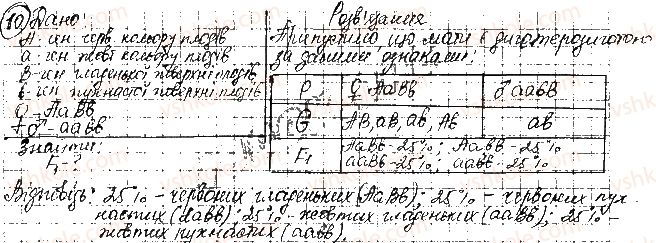 10 Дано:
А - ген черв. кольору плодів
а - ген жовт. кольору плодів
В - ген гладенької поверхні плодів
в - ген пухнастої поверхні плодів
♀ - АаВв
♂ - аавв
Знайти:
F₁ - ?
Розв'язання
Припустимо що мати є дигетерозиготою
за даними ознаками:
Р ♀ АаВв ♂ аавв
G АВ, аВ, ав, Ав ав
F₁ АаВв - 25%; Аавв - 25%
ааВв - 25%; аавв - 25%
Відповідь: 25% - червоних гладеньких (АаВв); 25% - червоних пух-
настих (Аавв); 25% - жовтих гладеньких (ааВв); 25% -
жовтих пухнастих (аавв).